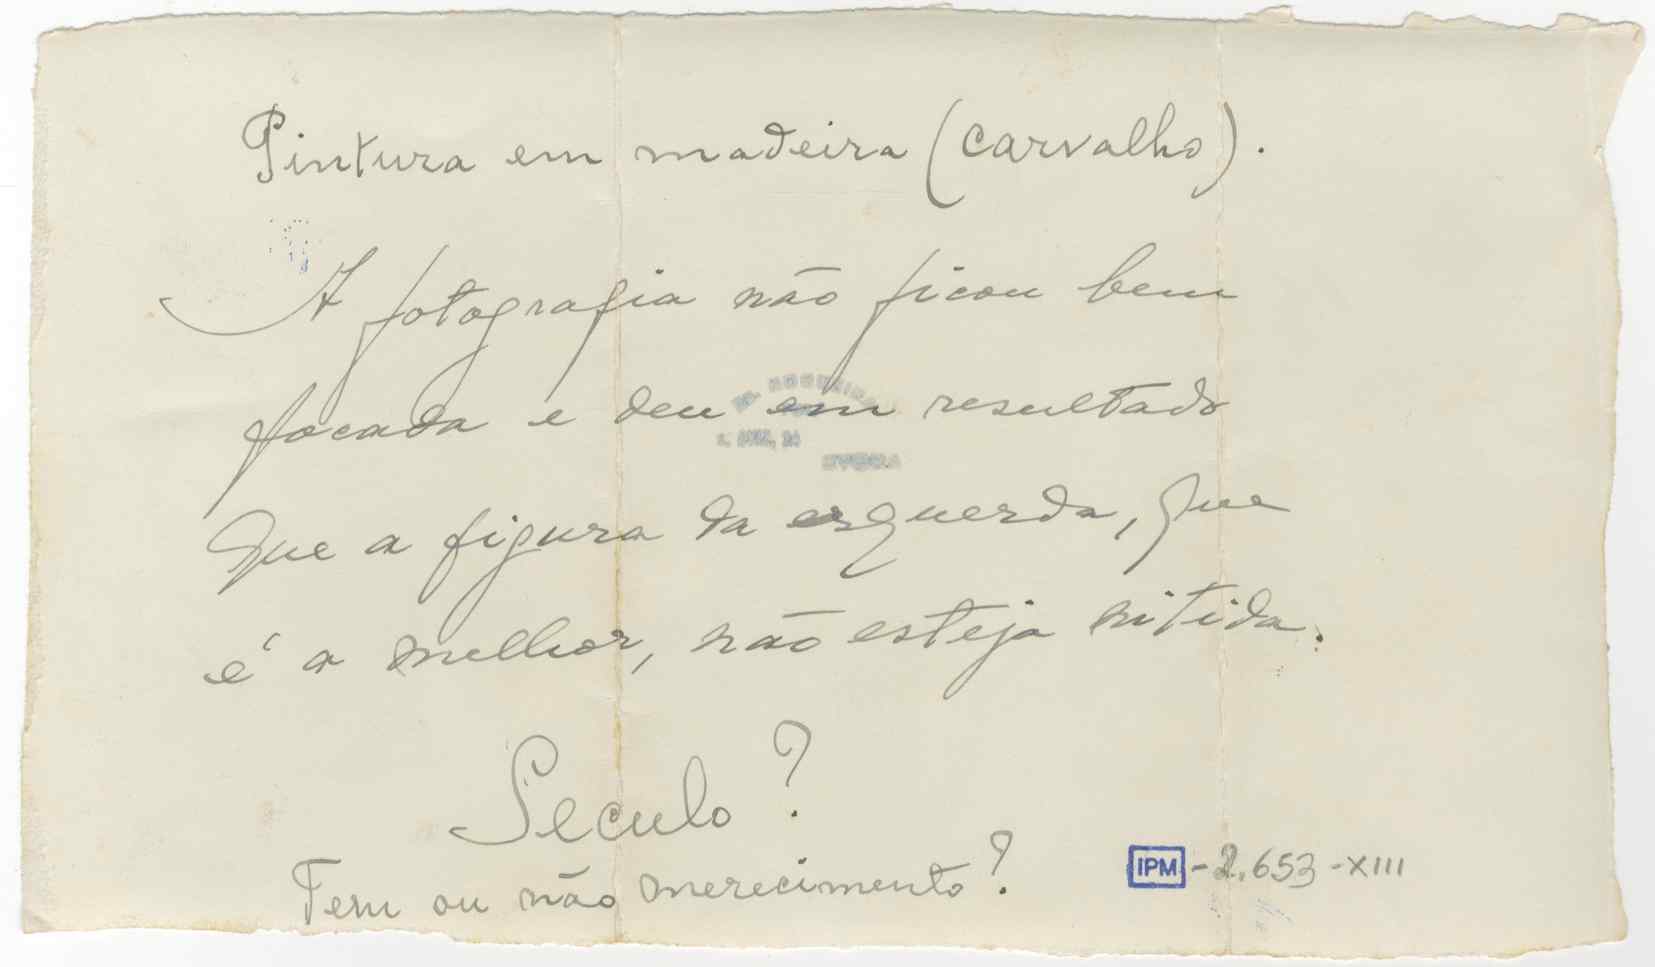 Pintura em madeira (carvalho).
A fotografia não ficou bem
focada e deu em resultado
que a figura da esquerda, que
é a melhor, não esteja nitida.
Seculo?
Tem ou não merecimento?
IPM - 2.653 - XIII